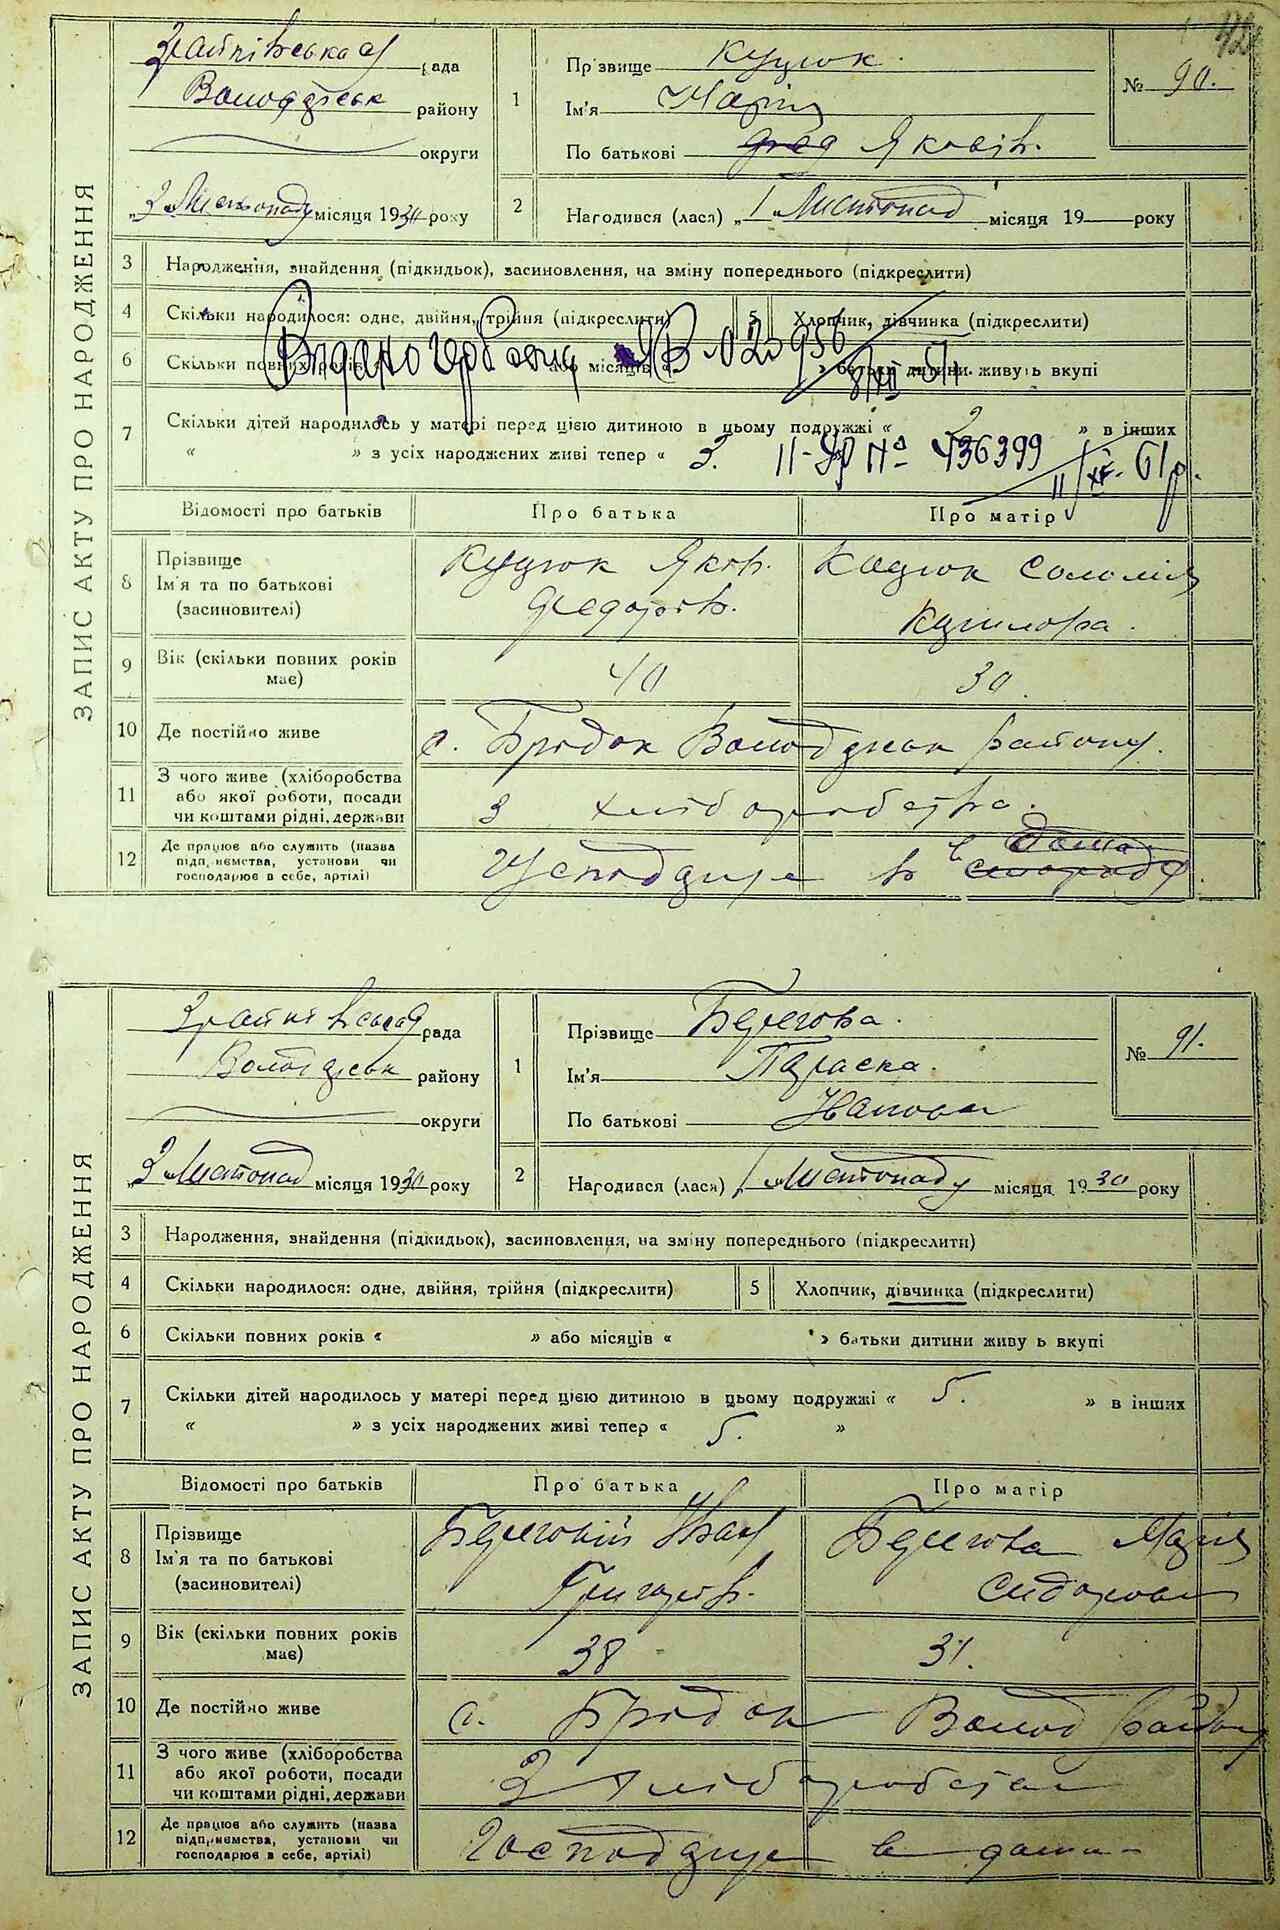 ЗАПИС АКТУ ПРО НАРОДЖЕННЯ
рада
району
округи
„3 Листопаду місяця 1930 року
1 Прізвище Куцюк.
Ім'я Марія
По батькові Яковів.
№ 90.
2 Народився (лася) „1 Листопад місяця 19 року
3 Народження, знайдення (підкидьок), засиновлення, на зміну попереднього (підкреслити)
4 Скільки народилося: одне, двійня, трійня (підкреслити) 5 Хлопчик, дівчинка (підкреслити)
6 Скільки повних років « або місяців « » батьки дитини живуть вкупі
Видано
7 Скільки дітей народилось у матері перед цією дитиною в цьому подружжі « 2 » в інших
« » з усіх народжених живі тепер « 3.
№ 436399
Відомості про батьків Про батька Про матір
8 Прізвище
Ім'я та по батькові
(засиновителі)
Куцюк Яків. Куцюк Соломія
9 Вік (скільки повних років
має)
40 30.
10 Де постійно живе с. Брідок району.
11 З чого живе (хліборобства
або якої роботи, посади
чи коштами рідні, держави
з хліборобства.
12 Де працює або служить (назва
підприємства, установи чи
господарює в себе, артілі)
в дома
ЗАПИС АКТУ ПРО НАРОДЖЕННЯ
рада
району
округи
„3 Листопад місяця 1930 року
1 Прізвище Берегова.
Ім'я Параска.
По батькові Іванова
№ 91.
2 Народився (лася) „1 Листопаду місяця 1930 року
3 Народження, знайдення (підкидьок), засиновлення, на зміну попереднього (підкреслити)
4 Скільки народилося: одне, двійня, трійня (підкреслити) 5 Хлопчик, дівчинка (підкреслити)
6 Скільки повних років « » або місяців « » батьки дитини живу ь вкупі
7 Скільки дітей народилось у матері перед цією дитиною в цьому подружжі « 5. » в інших
« » з усіх народжених живі тепер « 5. »
Відомості про батьків Про батька Про матір
8 Прізвище
Ім'я та по батькові
(засиновителі)
Береговий Іван Берегова Марія
Григорів. Сидорова
9 Вік (скільки повних років
має)
38 31.
10 Де постійно живе с. Брідок Волод району
11 З чого живе (хліборобства
або якої роботи, посади
чи коштами рідні, держави
З хліборобства
12 Де працює або служить (назва
підприємства, установи чи
господарює в себе, артілі)
Господарює в дома